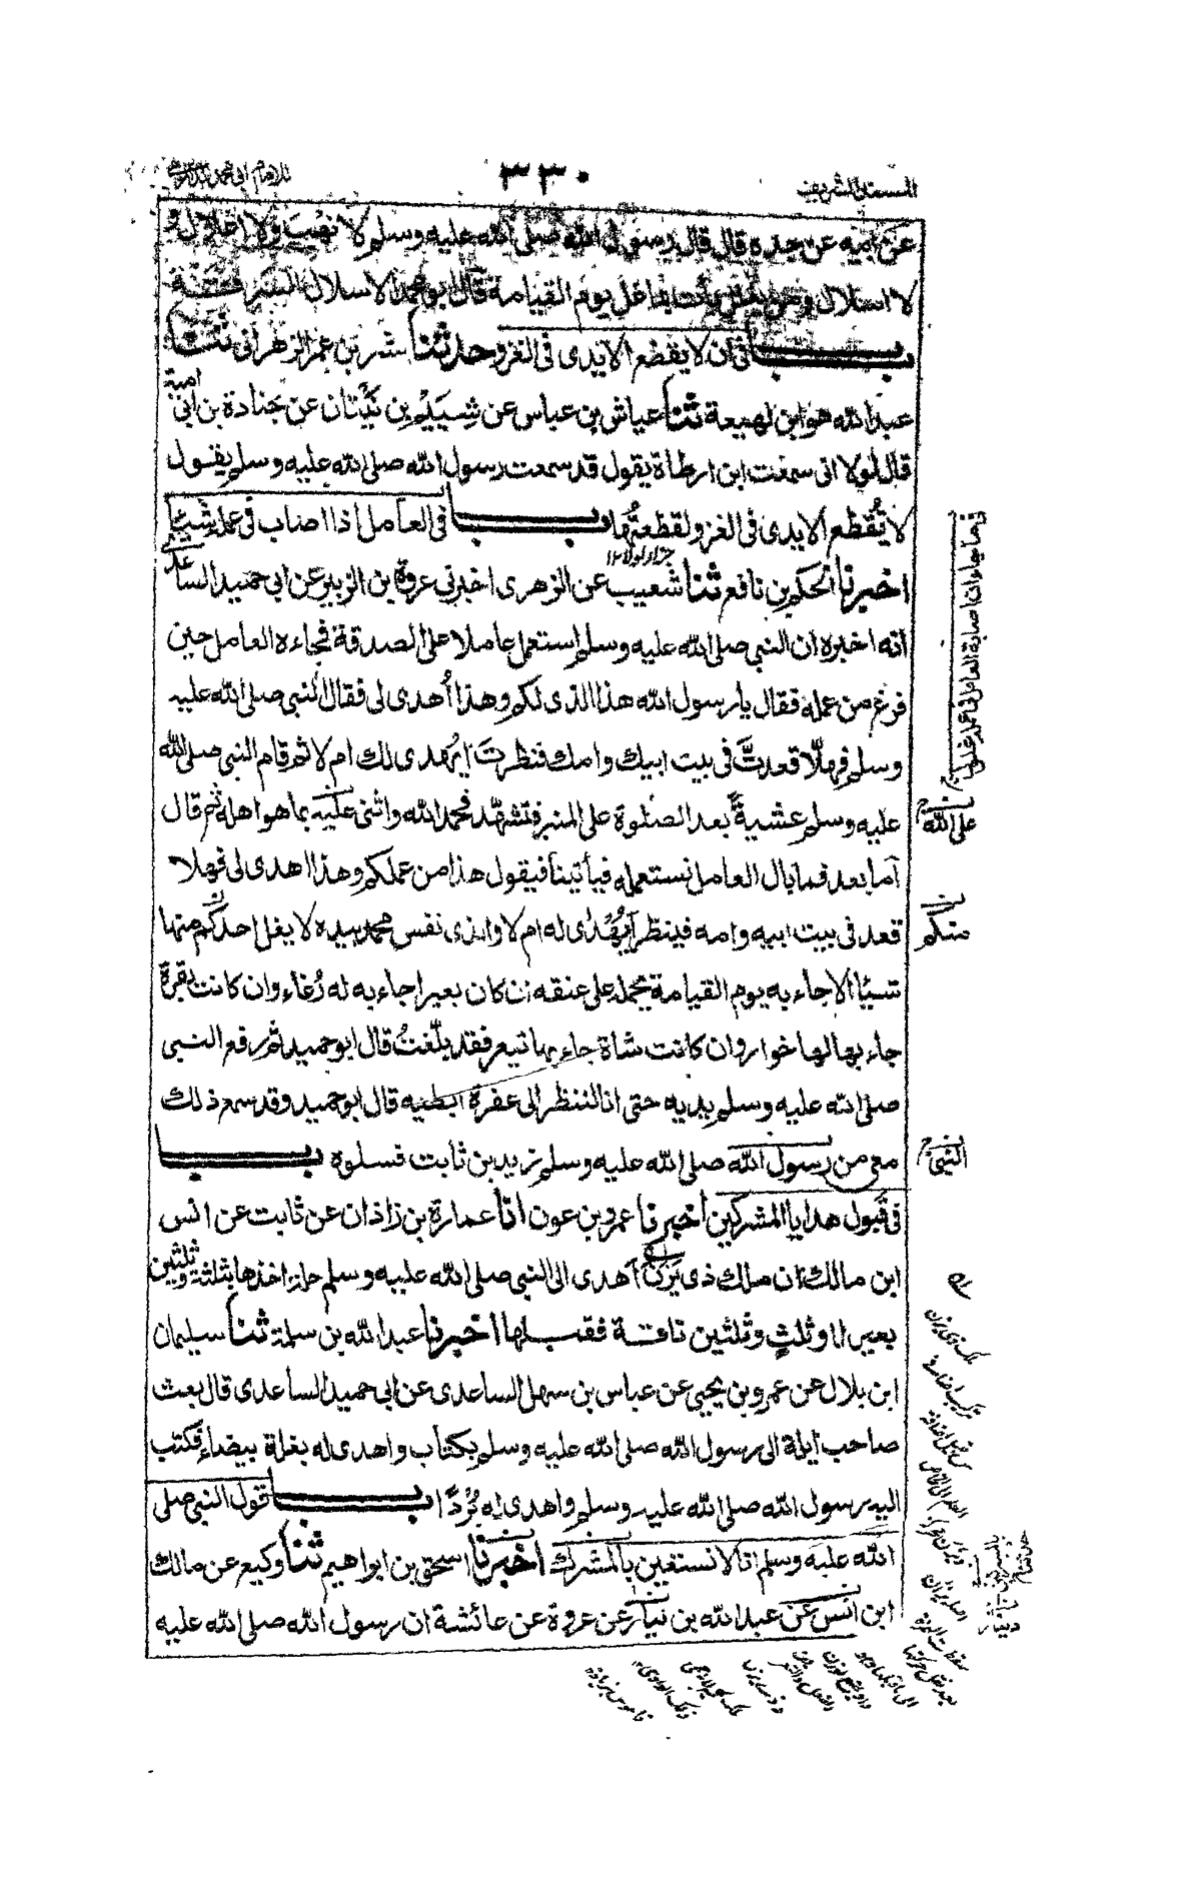 المسند الشريف
٣٣٠
للامام ابي محمد
عن ابيه عن جده قال قال رسول الله صلى الله عليه وسلم لا نهب ولا اغلال و
لا اسلال ومن يغلل يأت بما غل يوم القيامة قال ابو محمد الاسلال السرقة
باب فى ان لا يقطع الايدى فى الغزو حدثنا بشر بن عمر الزهرانى ثنا
عبد الله هو ابن لهيعة ثنا عياش بن عباس عن شييم بن بيتان عن جنادة بن ابى امية
قال لولا انى سمعت ابن ارطاة يقول قد سمعت رسول الله صلى الله عليه وسلم يقول
لا تقطع الايدى فى الغزو لقطعتها باب فى العامل اذا اصاب فى عمله شيئا
جزاء لولا ١٢
اخبرنا الحكم بن نافع ثنا شعيب عن الزهرى اخبرنى عروة بن الزبير عن ابى حميد الساعدى
انه اخبره ان النبى صلى الله عليه وسلم استعمل عاملا على الصدقة فجاءه العامل حين
فرغ من عمله فقال يا رسول الله هذا الذى لكم وهذا أهدى لى فقال النبى صلى الله عليه
وسلم فهلا قعدت فى بيت ابيك وامك فنظرت أيهدى لك ام لا ثم قام النبى صلى الله
عليه وسلم عشية بعد الصلوة على المنبر فتشهد فحمد الله واثنى عليه بما هو اهله ثم قال
اما بعد فما بال العامل نستعمله فيأتينا فيقول هذا من عملكم وهذا اهدى لى فهلا
قعد فى بيت ابيه وامه فينظر أيهدى له ام لا والذى نفس محمد بيده لا يغل احدكم منها
شيئا الا جاء به يوم القيامة يحمله على عنقه ان كان بعيرا جاء به له رغاء وان كانت بقرة
جاء بها لها خوار وان كانت شاة جاء بها تيعر فقد بلغت قال ابو حميد ثم رفع النبى
صلى الله عليه وسلم يديه حتى انا لننظر الى عفرة ابطيه قال ابو حميد وقد سمع ذلك
معى من رسول الله صلى الله عليه وسلم زيد بن ثابت فسلوه باب
فى قبول هدايا المشركين اخبرنا عمرو بن عون انا عمارة بن زاذان عن ثابت عن انس
ابن مالك ان ملك ذى يزن أهدى الى النبى صلى الله عليه وسلم حلة اخذها بثلثة وثلثين
بعيرا او ثلث وثلثين ناقة فقبلها اخبرنا عبد الله بن سلمة ثنا سليمان
ابن بلال عن عمرو بن يحيى عن عباس بن سهل الساعدى عن ابى حميد الساعدى قال بعث
صاحب أيلة الى رسول الله صلى الله عليه وسلم بكتاب واهدى له بغلة بيضاء فكتب
اليه رسول الله صلى الله عليه وسلم واهدى له بردا باب قول النبى صلى
الله عليه وسلم انا لا نستعين بالمشرك اخبرنا اسحق بن ابراهيم ثنا وكيع عن مالك
ابن انس عن عبد الله بن نيار عن عروة عن عائشة ان رسول الله صلى الله عليه
على الله
منكم
النبى